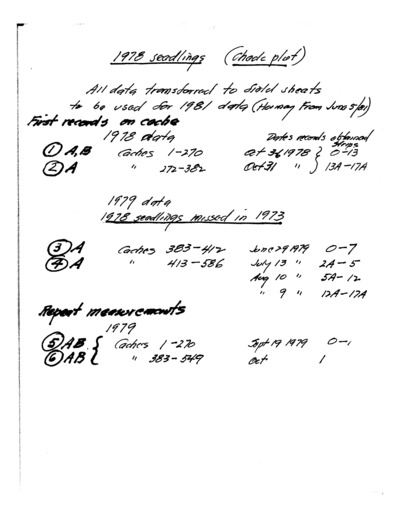 1978 seedlings (Chadc plot)
All data transferred to field sheets
to be used for 1981 data (Harvey From June 5/81)
First records on cache
1978 data Dates records obtained
Strips
① A,B Caches 1-270 Oct 3&, 1978 } 0-13
② A " 272-382 Oct 31 " } 13A-17A
1979 data
1978 seedlings missed in 1973
③ A Caches 383-412 June 29 1979 0-7
④ A " 413-586 July 13 " 2A-5
Aug 10 " 5A-12
" 9 " 12A-17A
Repeat measurements
1979
⑤ AB { Caches 1-270 Sept 19 1979 0-1
⑥ AB { " 383-549 Oct 1